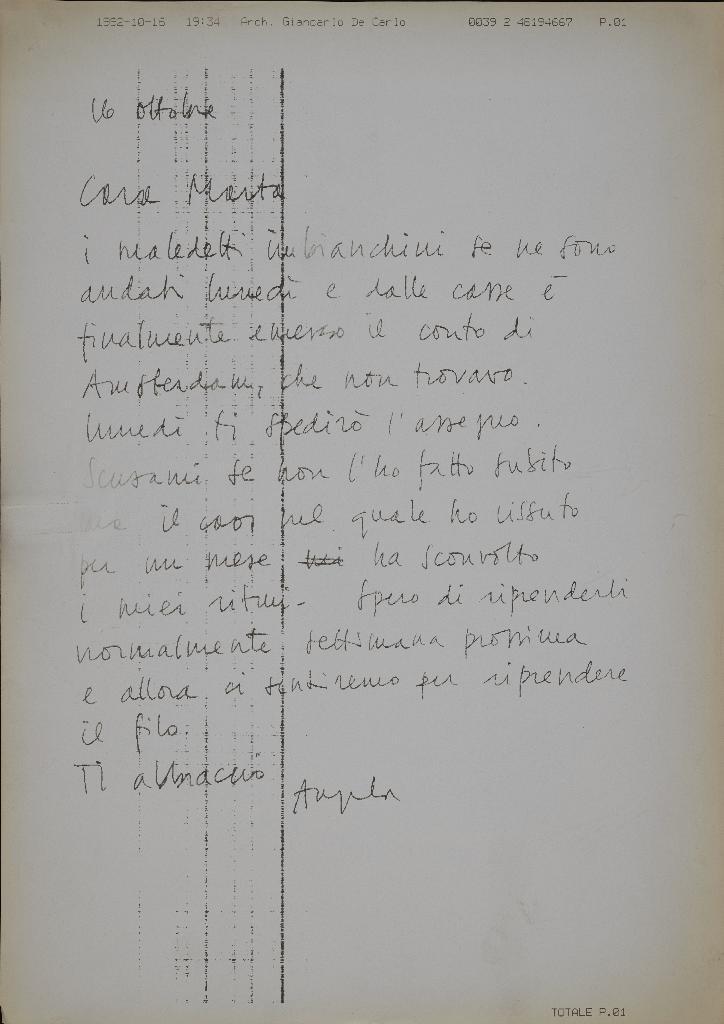 1992-10-16 19:34 Arch. Giancarlo De Carlo 0039 2 48194667 P.01
16 ottobre
Cara Marta
i maledetti imbianchini se ne sono
andati lunedì e dalle casse è
finalmente emerso il conto di
Amsterdam, che non trovavo.
lunedì ti spedirò l'assegno.
Scusami se non l'ho fatto subito
ma il caos nel quale ho vissuto
per un mese ha sconvolto
i miei ritmi. Spero di riprenderli
normalmente settimana prossima
e allora ci sentiremo per riprendere
il filo.
Ti abbraccio
Angela
TOTALE P.01